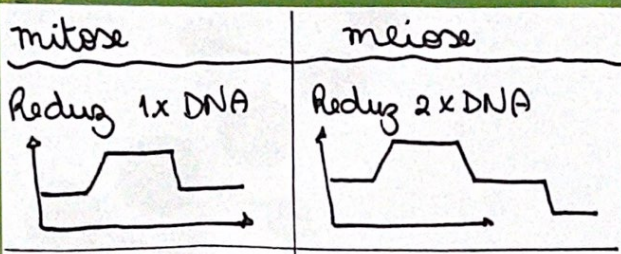 mitose
meiose
Reduz 1x DNA
Reduz 2x DNA